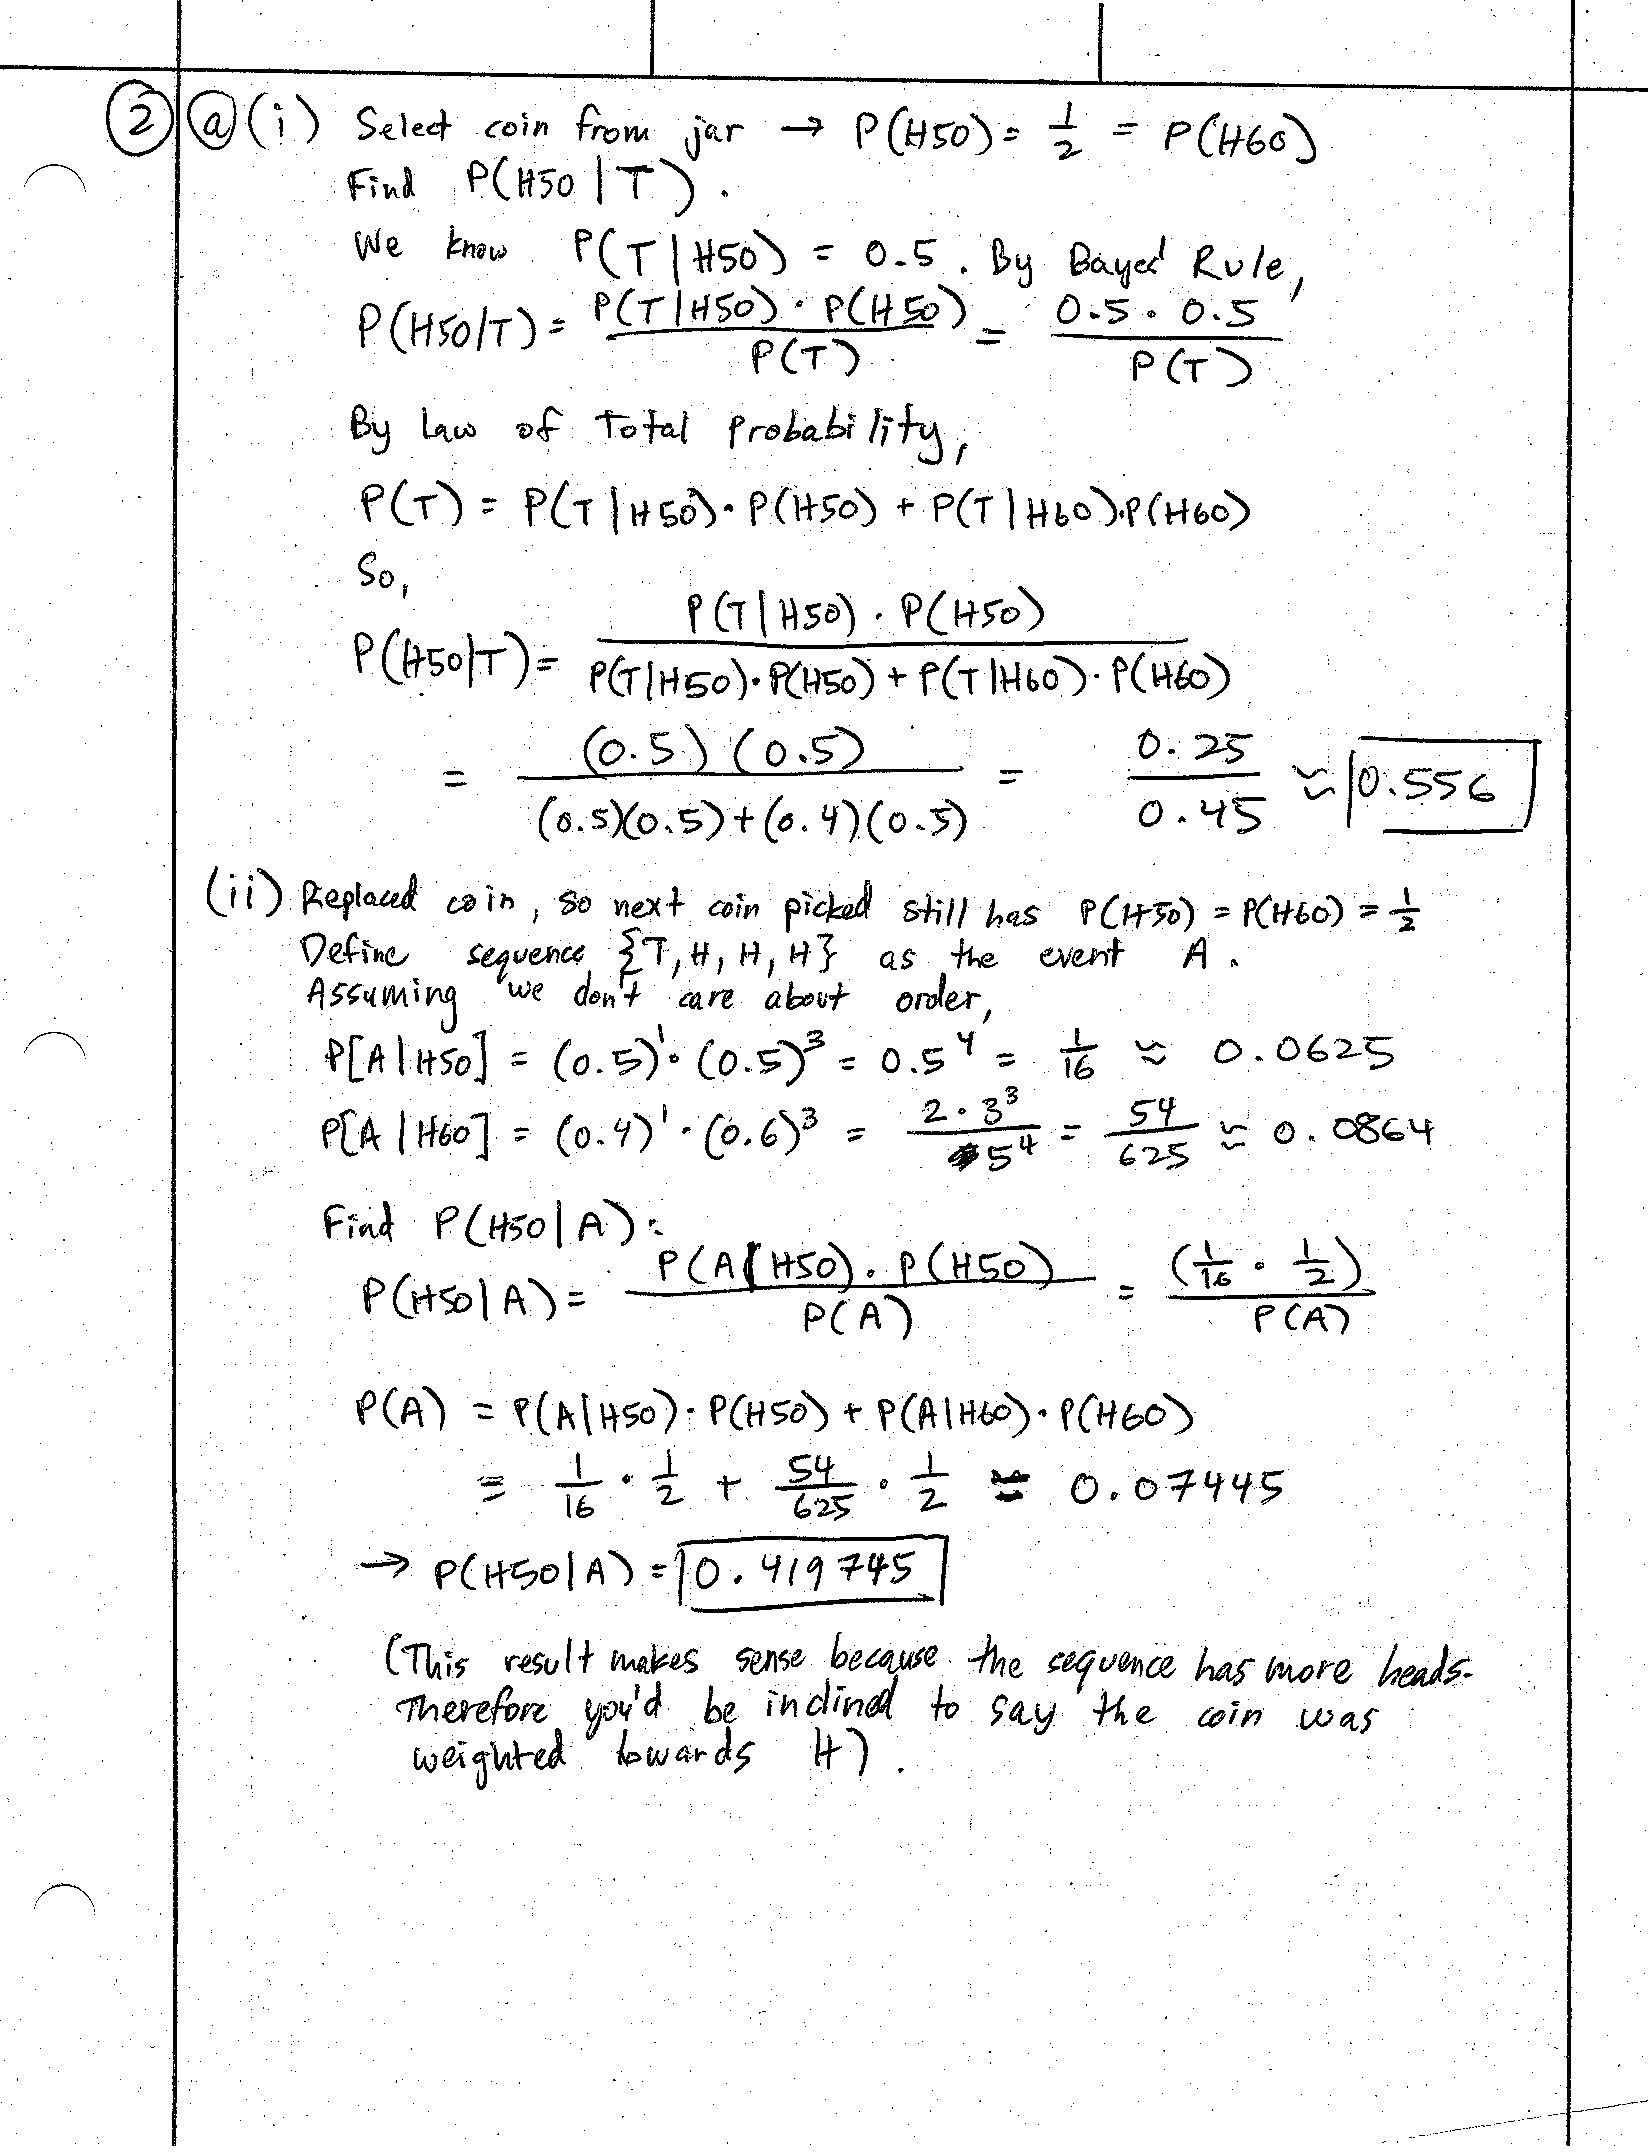 ② ⓐ (i) Select coin from jar → P(H50) = 1/2 = P(H60)
Find P(H50 | T).
We know P(T | H50) = 0.5. By Bayes' Rule,
P(H50|T) = P(T|H50) · P(H50) / P(T) = 0.5 · 0.5 / P(T)
By Law of Total Probability,
P(T) = P(T | H50) · P(H50) + P(T | H60) · P(H60)
So,
P(H50|T) = P(T | H50) · P(H50) / P(T|H50) · P(H50) + P(T|H60) · P(H60)
= (0.5) (0.5) / (0.5)(0.5) + (0.4)(0.5) = 0.25 / 0.45 ≈ 0.556
(ii) Replaced coin, so next coin picked still has P(H50) = P(H60) = 1/2
Define sequence {T, H, H, H} as the event A.
Assuming we don't care about order,
P[A | H50] = (0.5)¹ · (0.5)³ = 0.5⁴ = 1/16 ≈ 0.0625
P[A | H60] = (0.4)¹ · (0.6)³ = 2 · 3³ / 5⁴ = 54/625 ≈ 0.0864
Find P(H50 | A):
P(H50 | A) = P(A | H50) · P(H50) / P(A) = (1/16 · 1/2) / P(A)
P(A) = P(A | H50) · P(H50) + P(A | H60) · P(H60)
= 1/16 · 1/2 + 54/625 · 1/2 ≈ 0.07445
→ P(H50 | A) = 0.419745
(This result makes sense because the sequence has more heads.
Therefore you'd be inclined to say the coin was
weighted towards H).